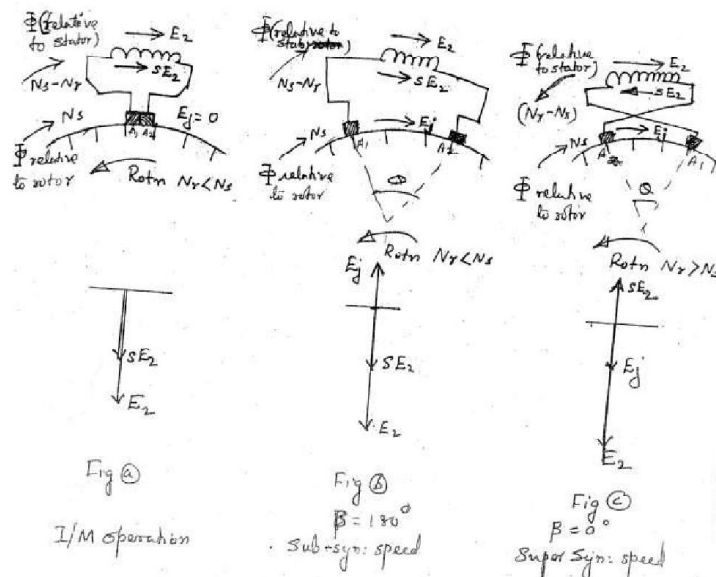 Φ (relative
to stator)
E2
sE2
Ns-Nr
Ns
Ej = 0
A1 A2
Φ relative
to rotor
Rotn Nr < Ns
sE2
E2
Fig (a)
I/M operation
Φ (relative to
E2
sE2
Ns-Nr
Ns
Ej
A1
A2
Φ relative
to rotor
θ
Rotn Nr < Ns
Ej
sE2
E2
Fig (b)
β = 180°
Sub-syn: speed
Φ (relative
to stator)
E2
sE2
(Nr-Ns)
Ns
Ej
A1
Φ relative
to rotor
θ
Rotn Nr > Ns
sE2
Ej
E2
Fig (c)
β = 0°
Super Syn: speed